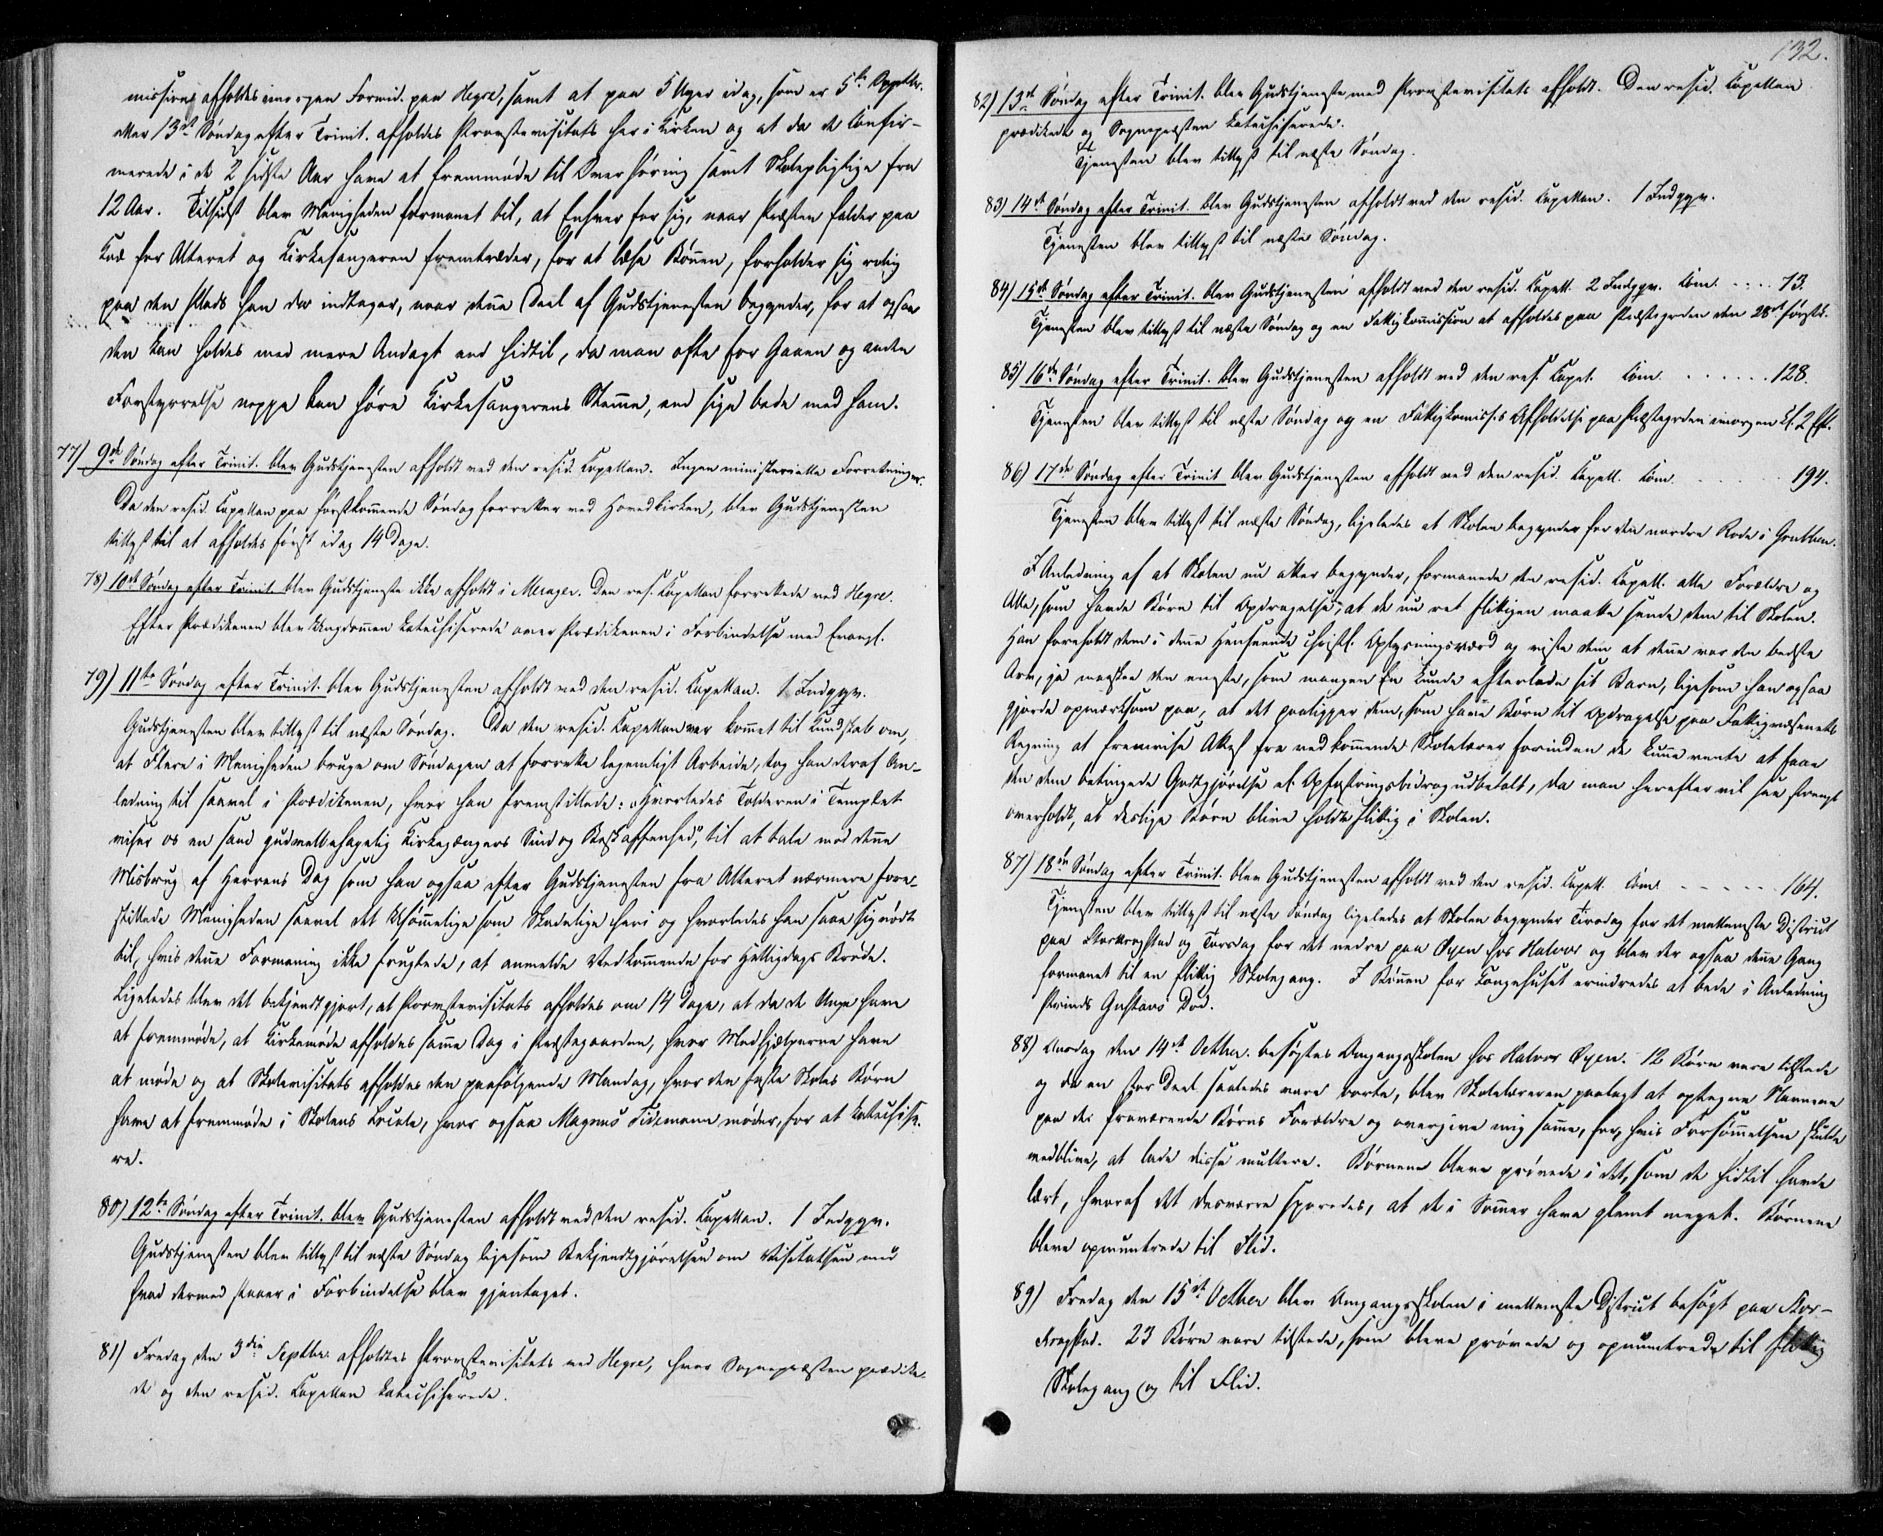 missions afholdes imorgen Formid. paa Hegre, samt at paa 5 Uger idag, som er 5te Septbr.
eller 13de Søndag efter Trinit. afholdes Provstevisitats her i Kirken og at da de Confir-
merede i de 2 sidste Aar have at fremmøde til Overhøring samt Skolepligtige fra
12 Aar. Tilsidst blev Menigheden formanet til, at Enhver for sig, naar Præsten falder paa
Knæ for Alteret og Kirkesangeren fremtræder, for at læse Bønnen, forholder sig rolig
paa den Plads han da indtager, naar denne Deel af Gudstjenesten begynder, for at ogsaa
den kan holdes med mere Andagt end hidtil, da man ofte for Gaaen og anden
Forstyrrelse neppe kan høre Kirkesangerens Stemme, end sige bede med ham.
77) 9de Søndag efter Trinit. blev Gudstjenesten afholdt ved den resid. Capellan. Ingen ministerielle Forretninger.
Da den resid. Capellan paa førstkommende Søndag forretter ved Hovedkirken, blev Gudstjenesten
tillyst til at afholdes først idag 14 Dage.
78) 10de Søndag efter Trinit. blev Gudstjeneste ikke afholdt i Merager. Den res. Capellan forrettede ved Hegre.
Efter Prædikenen blev Ungdommen katechiserede over Prædikenen i Forbindelse med Evangl.
79) 11te Søndag efter Trinit. blev Gudstjenesten afholdt ved den resid. Capellan. 1 Indggv.
Gudstjenesten blev tillyst til næste Søndag. Da den resid. Capellan var kommet til Kundskab om,
at Flere i Menigheden bruge om Søndagen at forrette legemligt Arbeide, tog han deraf An-
ledning til saavel i Prædikenen, hvor han fremstillede: "Hvorledes Tolderen i Templet
viser os en sand gudvelbehagelig Kirkegængers Sind og Beskaffenhed," til at tale mod denne
Misbrug af Herrens Dag som han ogsaa efter Gudstjenesten fra Alteret nærmere fore-
stillede Menigheden saavel det Usømmelige som Skadelige heri og hvorledes han saae sig nødt
til, hvis denne Formaning ikke frugtede, at anmelde Vedkommende for Helligdags Brøde.
Ligeledes blev det bekjendtgjort, at Provstevisitats afholdes om 14 Dage, at da de Unge have
at fremmøde, at Kirkemøde afholdes samme Dag i Præstegaarden, hvor Medhjælperne have
at møde og at Skolevisitats afholdes den paafølgende Mandag, hvor den faste Skoles Børn
have at fremmøde i Skolens Locale, hvor ogsaa Magnus Tidemann møder, for at katechise-
re.
80) 12te Søndag efter Trinit. blev Gudstjenesten afholdt ved den resid. Capellan. 1 Indggv.
Gudstjenesten blev tillyst til næste Søndag ligesom Bekjendtgjørelsen om Visitatsen med
hvad dermed staaer i Forbindelse blev gjentaget.
81) Fredag den 3die Septbr. afholdtes Provstevisitats ved Hegre, hvor Sognepræsten prædike-
de og den resid. Capellan katechiserede.
132.
82) 13de Søndag efter Trinit. blev Gudstjeneste med Provstevisitats afholdt. Den resid. Capellan
prædikede og Sognepræsten katechiserede.
Tjenesten blev tillyst til næste Søndag.
83) 14de Søndag efter Trinit. blev Gudstjenesten afholdt ved den resid. Capellan. 1 Indggv.
Tjenesten blev tillyst til næste Søndag.
84) 15de Søndag efter Trinit. blev Gudstjenesten afholdt ved den resid. Capell. 2 Indggv. Com. - - - - 73.
Tjenesten blev tillyst til næste Søndag og en Fattigkommission at afholdes paa Præstegrden den 28de førstk.
85) 16de Søndag efter Trinit. blev Gudstjenesten afholdt ved den res. Capel. Com. - - - - - - 128.
Tjenesten blev tillyst til næste Søndag og en Fattigkomiss.s Afholdelse paa Præstegrden imorgen Kl. 2 Eft.
86) 17de Søndag efter Trinit blev Gudstjenesten afholdt ved den resid. Capell. Com. - - - - - - 194.
Tjenesten blev tillyst til næste Søndag, ligeledes at Skolen begynder for den nordre Rode i
I Anledning af at Skolen nu atter begynder, formanede den resid. Capell. alle Forældre og
Alle, som havde Børn til Opdragelse, at de nu ret flittigen maatte sende dem til Skolen.
Han foreholdt dem i denne Henseende christl. Oplysnings værd og viste dem at denne var den bedste
Arv, ja maaskee den eneste, som mangen En kunde efterlade sit Barn, ligesom han ogsaa
gjorde opmærksom paa, at det paaligger dem, som have Børn til Opdragelse paa Fattigvæsenets
Regning at fremvise Attest fra vedkommende Skolelærer forinden de kunne vente at faae
den dem betingede Godtgjørelse af Opfostringsbidrag udbetalt, da man herefter vil see strengt
overholdt, at deslige Børn blive holdte flittig i Skolen.
87) 18de Søndag efter Trinit. blev Gudstjenesten afholdt ved den resid. Capell. Com. - - - - - 164.
Tjenesten blev tillyst til næste Søndag ligeledes at Skolen begynder Tirsdag for det mellemste District
paa Storkrogstad og Torsdag for det nedre paa Øyen hos Halvor og blev der ogsaa denne Gang
formanet til en flittig Skolegang. I Bønnen for Kongehuset erindredes at bede i Anledning
Prinds Gustavs Død.
88) Onsdag den 14de Octbr. besøgtes Omgangsskolen hos Halvor Øyen. 12 Børn vare tilstede
og da en stor Deel saaledes vare borte, blev Skolelæreren paalagt at optegne Navnene
paa de fraværende Børns Forældre og overgive mig samme, for, hvis Forsømmelsen skulde
vedblive, at lade disse multere. Børnene bleve prøvede i det, som de hidtil havde
lært, hvoraf det desværre sporedes, at de i Sommer have glemt meget. Børnene
bleve opmuntrede til Flid.
89) Fredag den 15de Octbr blev Omgangsskolen i mellemste District besøgt paa Stor-
krogstad. 23 Børn vare tilstede, som bleve prøvede og opmuntrede til flittig
Skolegang og til Flid.